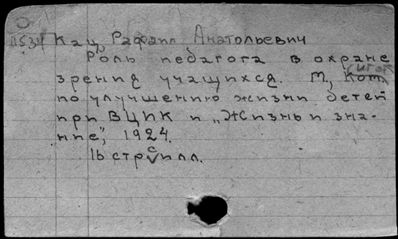 Кац Рафаил Анатольевич
Роль педагога в охране
зрения учащихся. М., Ком.
по улучшению жизни детей
при ВЦИК и „Жизнь и зна-
ние", 1924.
16 стр с илл.